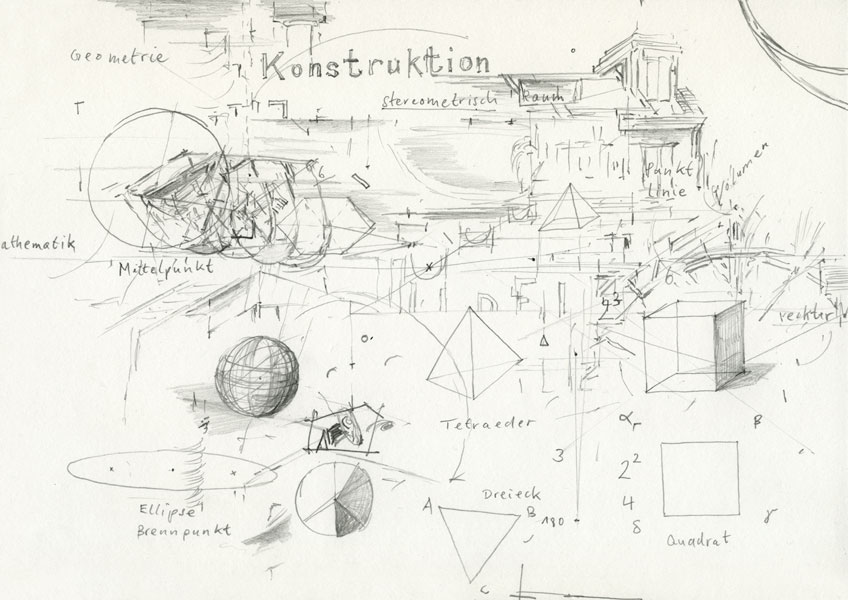 Geometrie
Konstruktion
stereometrisch Raum
T
Punkt
Linie
Volumen
6
athematik
Mittelpunkt
6
4 3
Tetraeder
α
β
3
2²
4
δ
γ
Ellipse
Brennpunkt
Dreieck
A
B
180
C
Quadrat
1